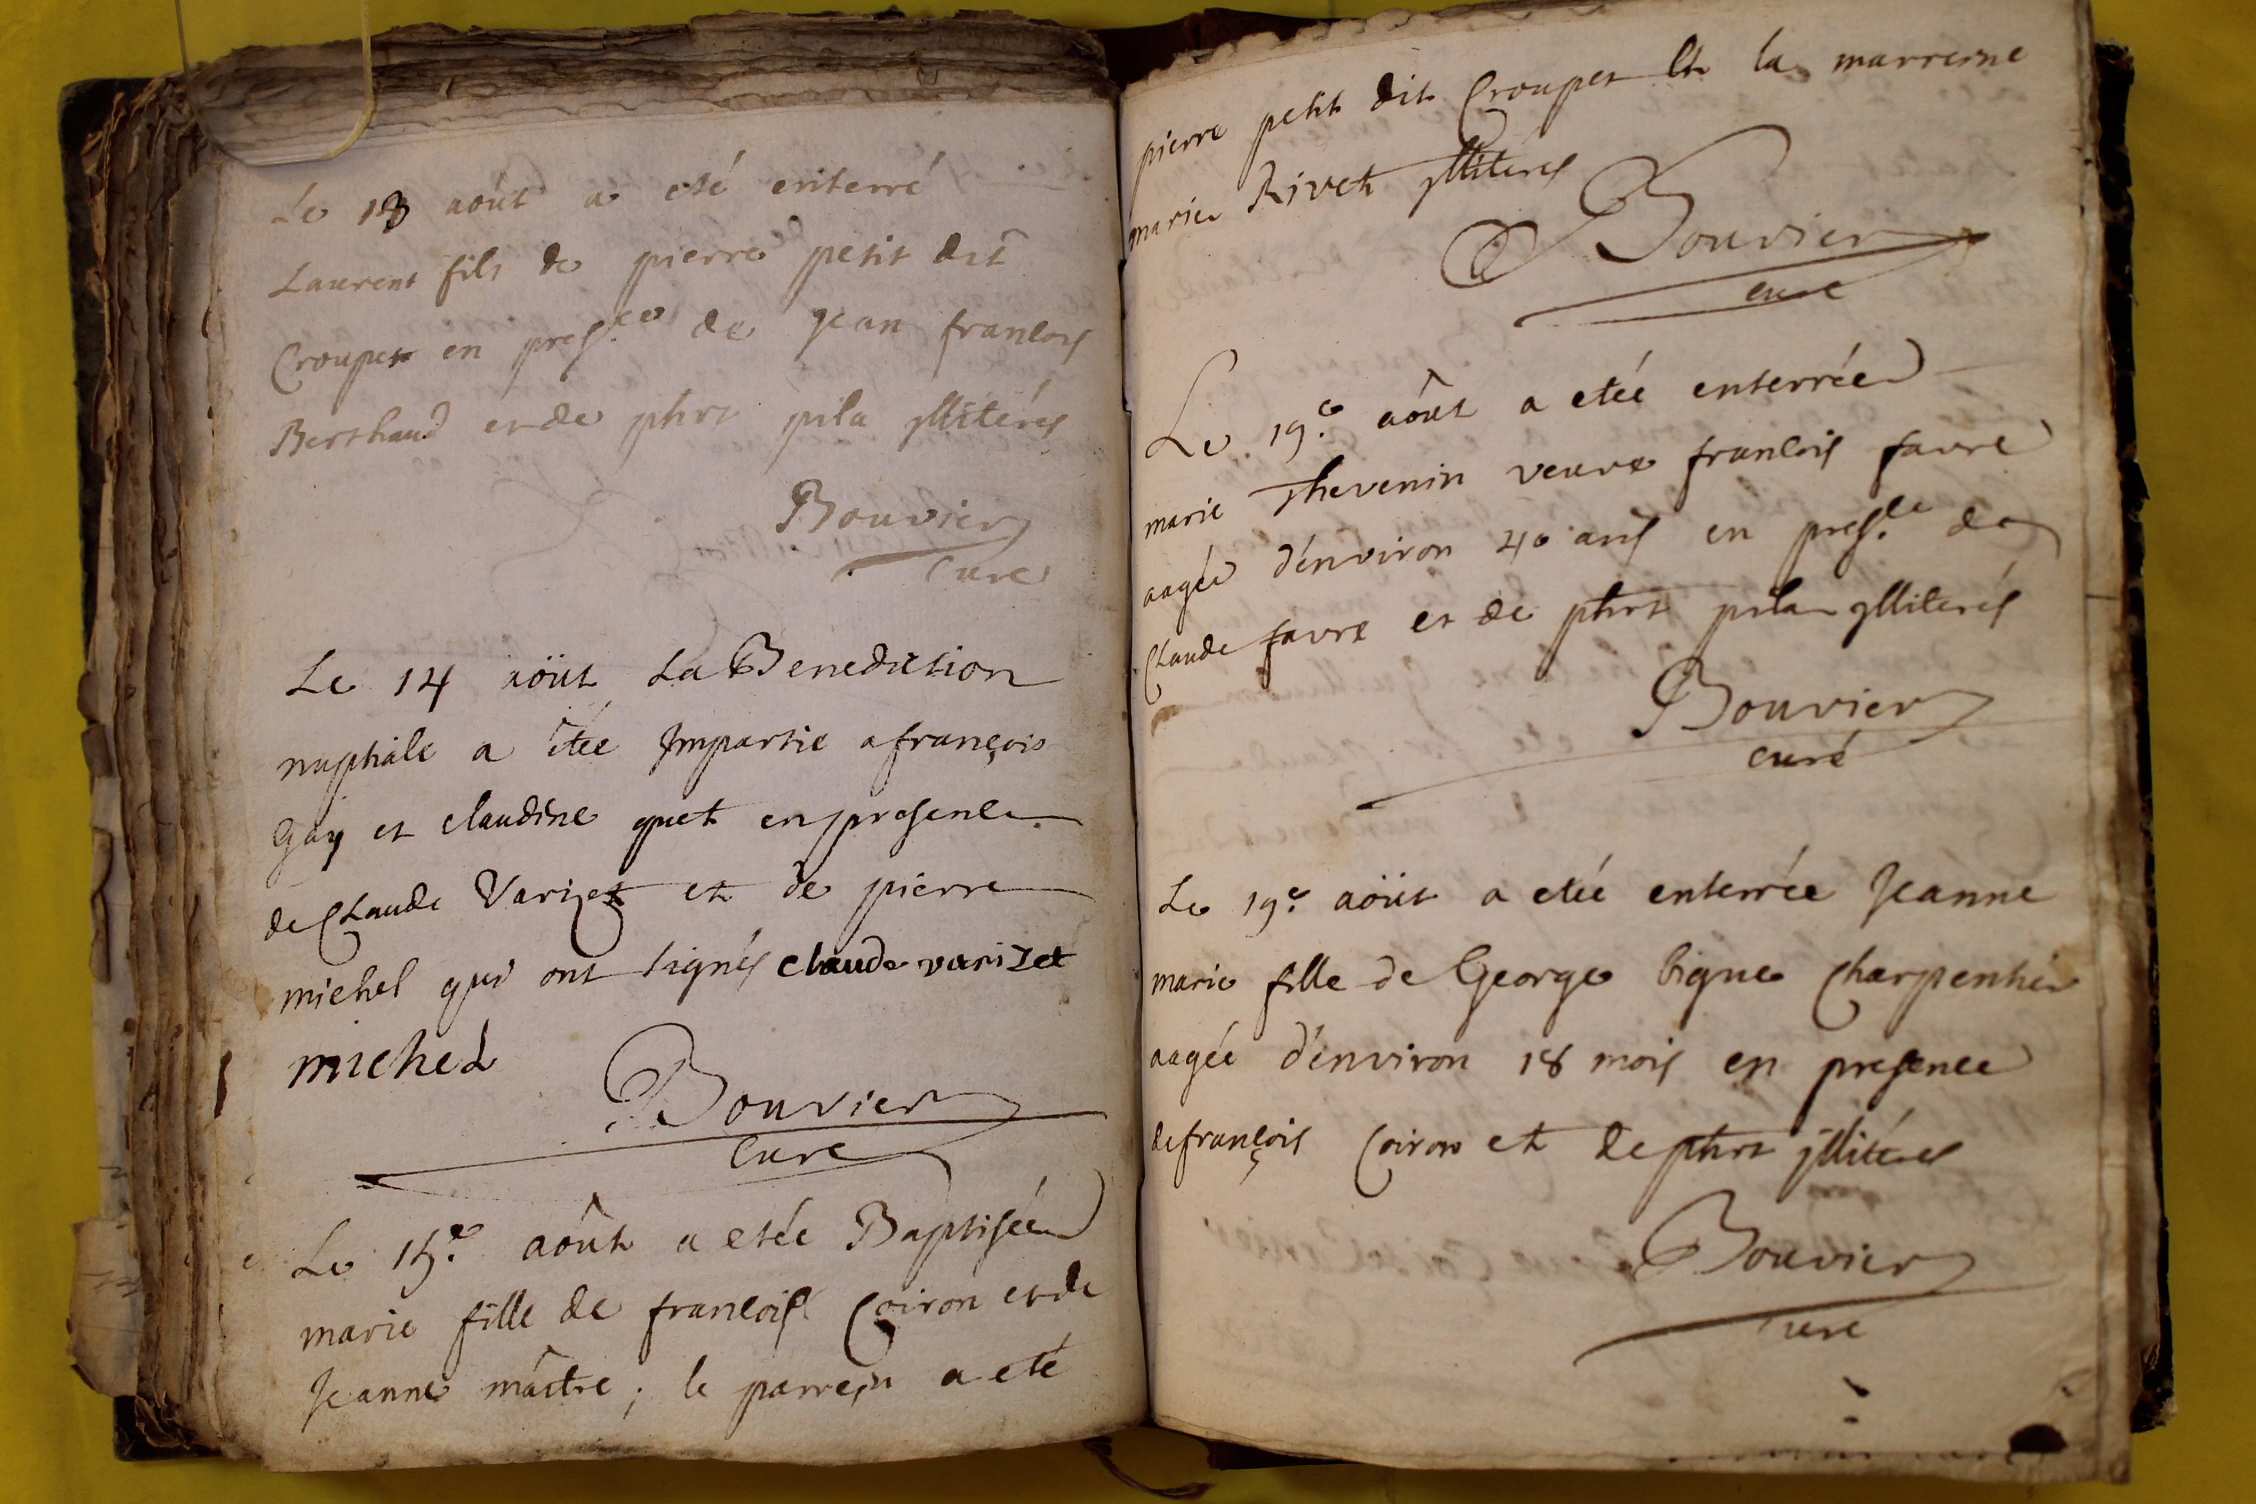 Le 13 août a eté enterré
Laurent fils de pierre petit dit
Croupet en pres.ce de jean francois
Berthaud et de phrt pila jlliterés
Bouvier
Curé
Le 14 aöut La Benediction
nuptiale a êtée Jmpartie a françois
Gay et claudine guet en presence
de Claude Varizet et de pierre
michel qui ont signés claude varizet
micheL
Bouvier
Curé
Le 15.e aôut a etée Baptisée
marie fille de francois Coiron et de
Jeanne mâitre ; le parrein a eté
pierre petit dit Croupet Et la marreine
marie Rivet jlliterés
Bouvier
curé
Le 19.e aôut a etéé enterrée
marie Thevenin veuve francois favre
aagée d'énviron 40 ans en pres.ce de
Claude favre et de phrt pila jlliterés
Bouvier
curé
Le 19.e aöut a etéé enterrée Jeanne
marie fille de George bigue Charpentier
aagée d'énviron 18 mois en presence
de françois Coiron et de phrt jlliterés
Bouvier
Curé